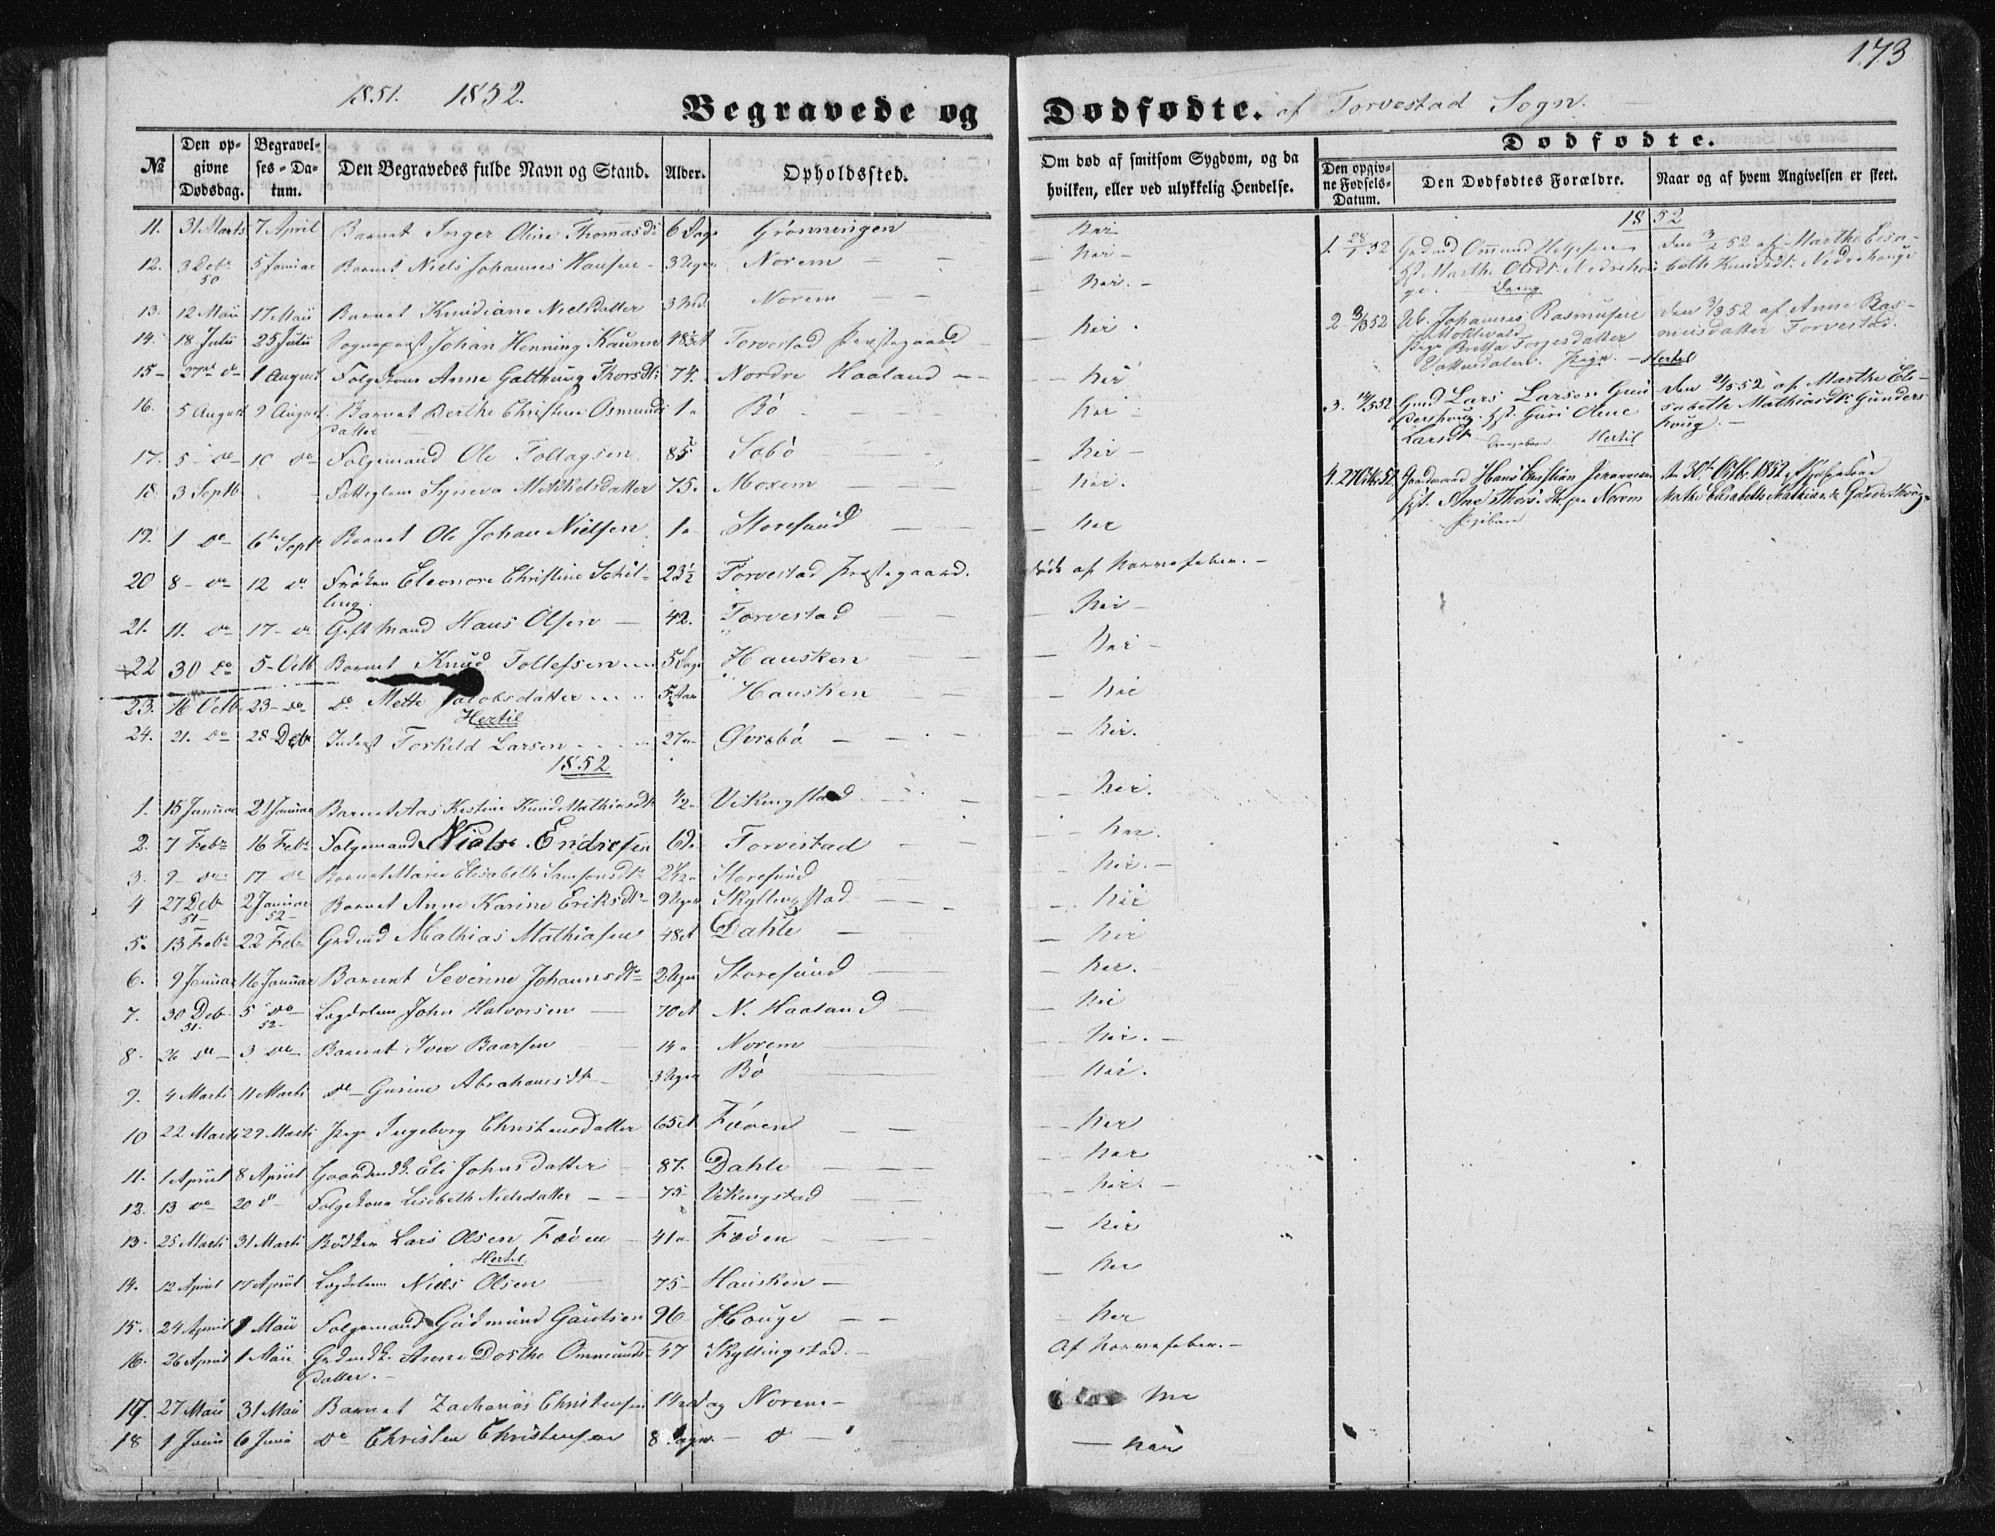 173
1851. 1852.
Begravede og Dødfødte. af Torvestad Sogn.
Dødfødte.
№ | Den opgivne Dødsdag. | Begravelses-Datum. | Den Begravedes fulde Navn og Stand. | Alder. | Opholdssted. | Om død af smitsom Sygdom, og da hvilken, eller ved ulykkelig Hendelse. | Den opgivne Fødsels-Datum. | Den Dødfødtes Forældre. | Naar og af hvem Angivelsen er skeet.
11. 31 Marts 7 April Barnet Inger Oline Thomasd: 6 Dage Grønningen Nei
12. 3 Debr 50 5 Januar Barnet Niels Johannes Hansen 3 Uger Norem Nei
13. 12 Maii 17 Maii Barnet Knudiane Nielsdatter 3 Norem Nei.
14. 18 Julii 25 Julii Sognepræst Johan Henning 48 Torvestad Præstegaard Nei.
15 27de do 1 August Folgekone Anne Thorsdtr 74. Nordre Haaland Nei
16. 5 August 9 August Barnet Berthe Christine Osmundsdatter 1 Bø Nei
17. 5 do 10 do Folgemand Ole 85 Sabø Nei
18. 3 Septb Fattiglem Syneva Mikkelsdatter 75. Norem Nei.
19. 1 do 6te Septb Barnet Ole Johan Nielsen. 1 Storesund Nei
20 8 do 12 do Frøken Eleonore Christine Schilling. 23½ Torvestad Præstegaard. Døde af Nervefeber.
21. 11. do 17 do Gift Mand Hans Olsen 42. Torvestad Nei
22 30 do 5 Octb Barnet Knud Tollefsen 5 Dage Hausken Nei
23. 16 Octb 23 do do Mette Jacobsdatter 5 Aar Hausken Nei
Hertil
24. 21. do 28 Debr Inderst Torkild Larsen 27 Øvrebø Nei.
1852
1. 15 Januar 21 Januar Barnet Aas Kistine Knud Mathiasdtr ½ Vikingstad Nei.
2. 7 Febr 16 Febr Folgemand Niels Endresen 61 Torvestad Nei.
3. 9 do 17 do Barnet Marie Elisabeth Samsonsdtr 2½ Storesund Nei.
4 27 Deb 51 2 Januar 52 Barnet Anne Karine Eriksdtr 9 Uger Skyllingstad Nei
5. 13 Febr 22 Febr Grdmd Mathias Mathiasen 48 Dahle Nei
6. 9 Januar 16 Januar Barnet Severine Johannsdtr 2 Uger Storesund Nei.
7. 30 Deb 51. 5 do 52 Lægdslem John Halvorsen 70 N. Haaland Nei
8. 26 do 3 do Barnet Iver Baarsen Norem Nei.
9. 4 Marts 11 Marts do Gurine Abrahamsdtr 3 Uger Bø Nei.
10 22 Marts 29 Marts Pige Ingeborg Christensdatter 65 Føøen Nei
11. 1 April 8 April Gaardmdk. Eli Johnsdatter 87. Dahle Nei
12. 13 do 20 do Folgekone Lisebeth Nielsdatter 75 Vikingstad Nei.
13. 25 Marts 31 Marts Bødker Lars Olsen Føøen 41 Føøen Nei
Hertil
14. 12 April 17 April Lægdslem Niels Olsen 75 Hausken Nei
15. 24 April 1 Maii Folgemand Gudmund Gautsen 96 Houge Nei
16. 26 April 1 Maii Grdmdk. Anne Dorthe Ommundsdatter. 47 Skyllingstad. Af Nervefeber.
17. 27 Maii 31 Maii Barnet Zacharias Christensen Norem Nei
18 1 Juni 6 Juni do Christen Christensen 8 Dage do Nei
1852
1. 28/1 52 Grdmd Ommund Helgesen Hst. Marthe Olsdtr Nedrehouge. Dreng Den 3/2 52 af Marthe Elisabeth Knudsdtr Nedrehouge
2 3/3 52 Ub. Johannes Rasmusen Pige Bretta Torjesdatter Vattendalen. Pige. Hertil Den 3/3 52 af Anne Rasmusdatter Torvestad.
3. 14/5 52 Grmd Lars Larsen Gundershoug. Hst. Guri Oline Larsdtr Drengebarn Hertil Den 21/5 52 af Marthe Elisabeth Mathiasdtr Gundershoug.
4. 27 Octbr 52 Gaardmand Hans Christian Johannesen Hst. Ane Thorsdtr Norem Pigebarn den 30te Octb. 1852 af Marthe Elisabeth Mathiasdtr Gundershoug